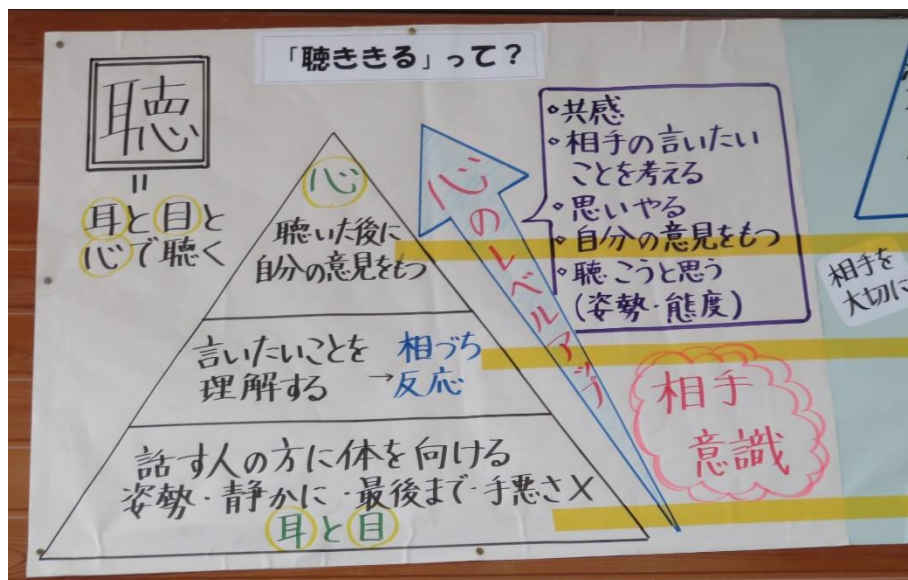 「聴ききる」って？
聴
=
耳と目と
心で聴く
心
聴いた後に
自分の意見をもつ
言いたいことを
理解する
→相づち
反応
話す人の方に体を向ける
姿勢・静かに・最後まで・手悪さ×
耳と目
心のレベルアップ
・共感
・相手の言いたい
ことを考える
・思いやる
・自分の意見をもつ
・聴こうと思う
(姿勢・態度)
相手
意識
相手を
大切に